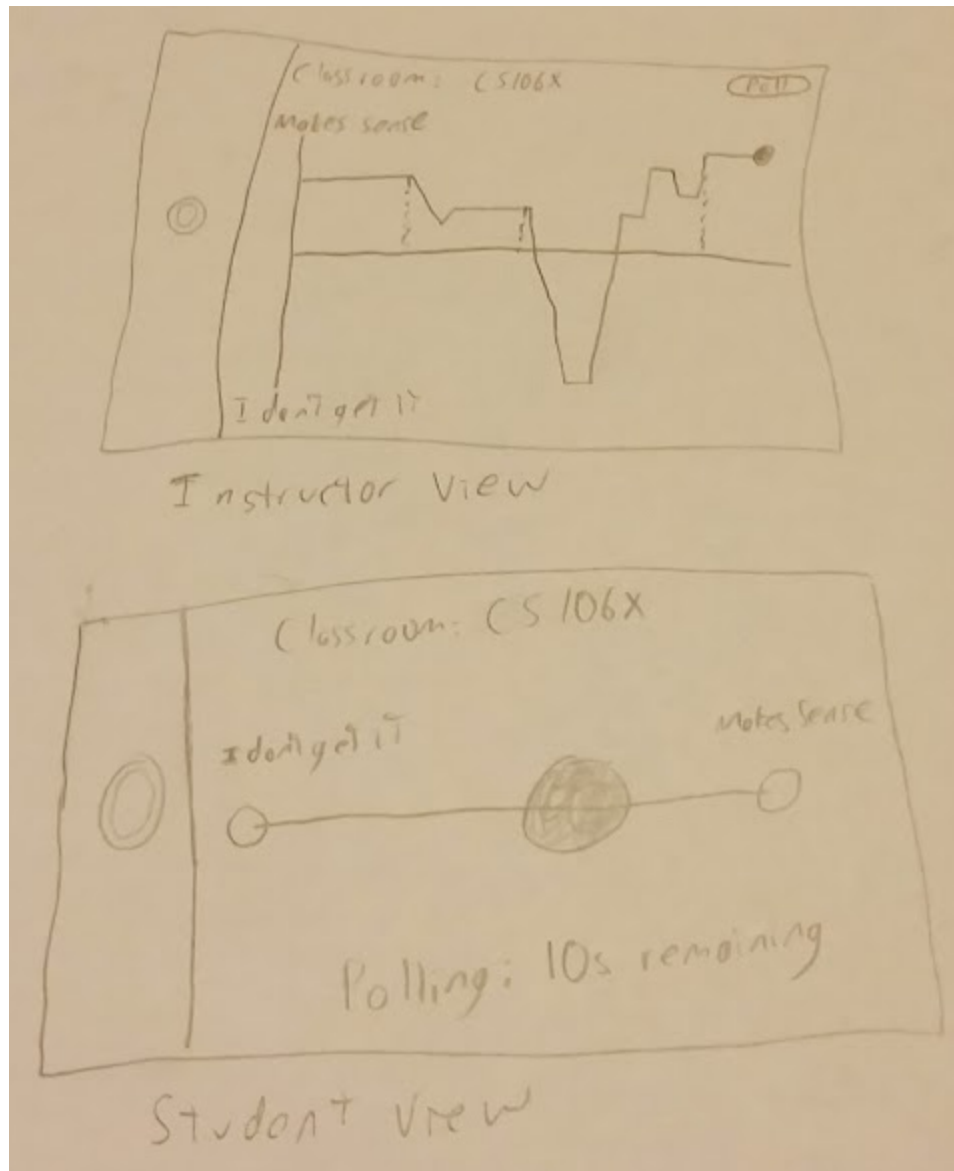 Classroom: CS106X
Poll
Makes sense
I don't get it
Instructor View
Classroom: CS106X
I don't get it
Makes Sense
Polling: 10s remaining
Student View